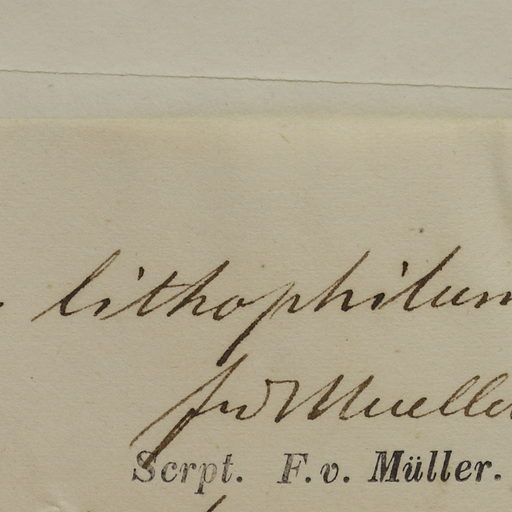 lithophilum
ferd Mueller
Scrpt. F. v. Müller.